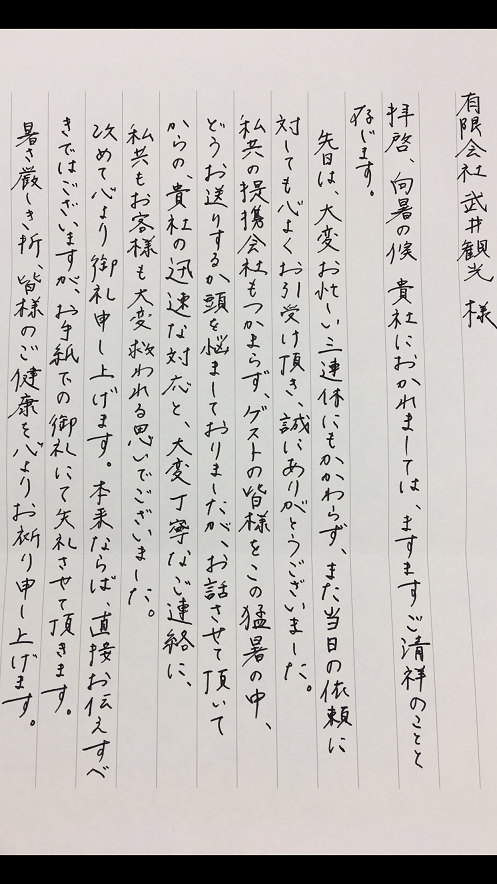 有限会社 武井観光 様
拝啓、向暑の候 貴社におかれましては、ますますご清祥のことと
存じます。
先日は、大変お忙しい三連休にもかかわらず、また当日の依頼に
対しても心よくお引受け頂き、誠にありがとうございました。
私共の提携会社もつかまらず、ゲストの皆様をこの猛暑の中、
どうお送りするか頭を悩ましておりましたが、お話させて頂いて
からの、貴社の迅速な対応と、大変丁寧なご連絡に、
私共もお客様も大変救われる思いでございました。
改めて心より御礼申し上げます。本来ならば、直接お伝えすべ
きではございますが、お手紙での御礼にて失礼させて頂きます。
暑さ厳しき折、皆様のご健康を心よりお祈り申し上げます。